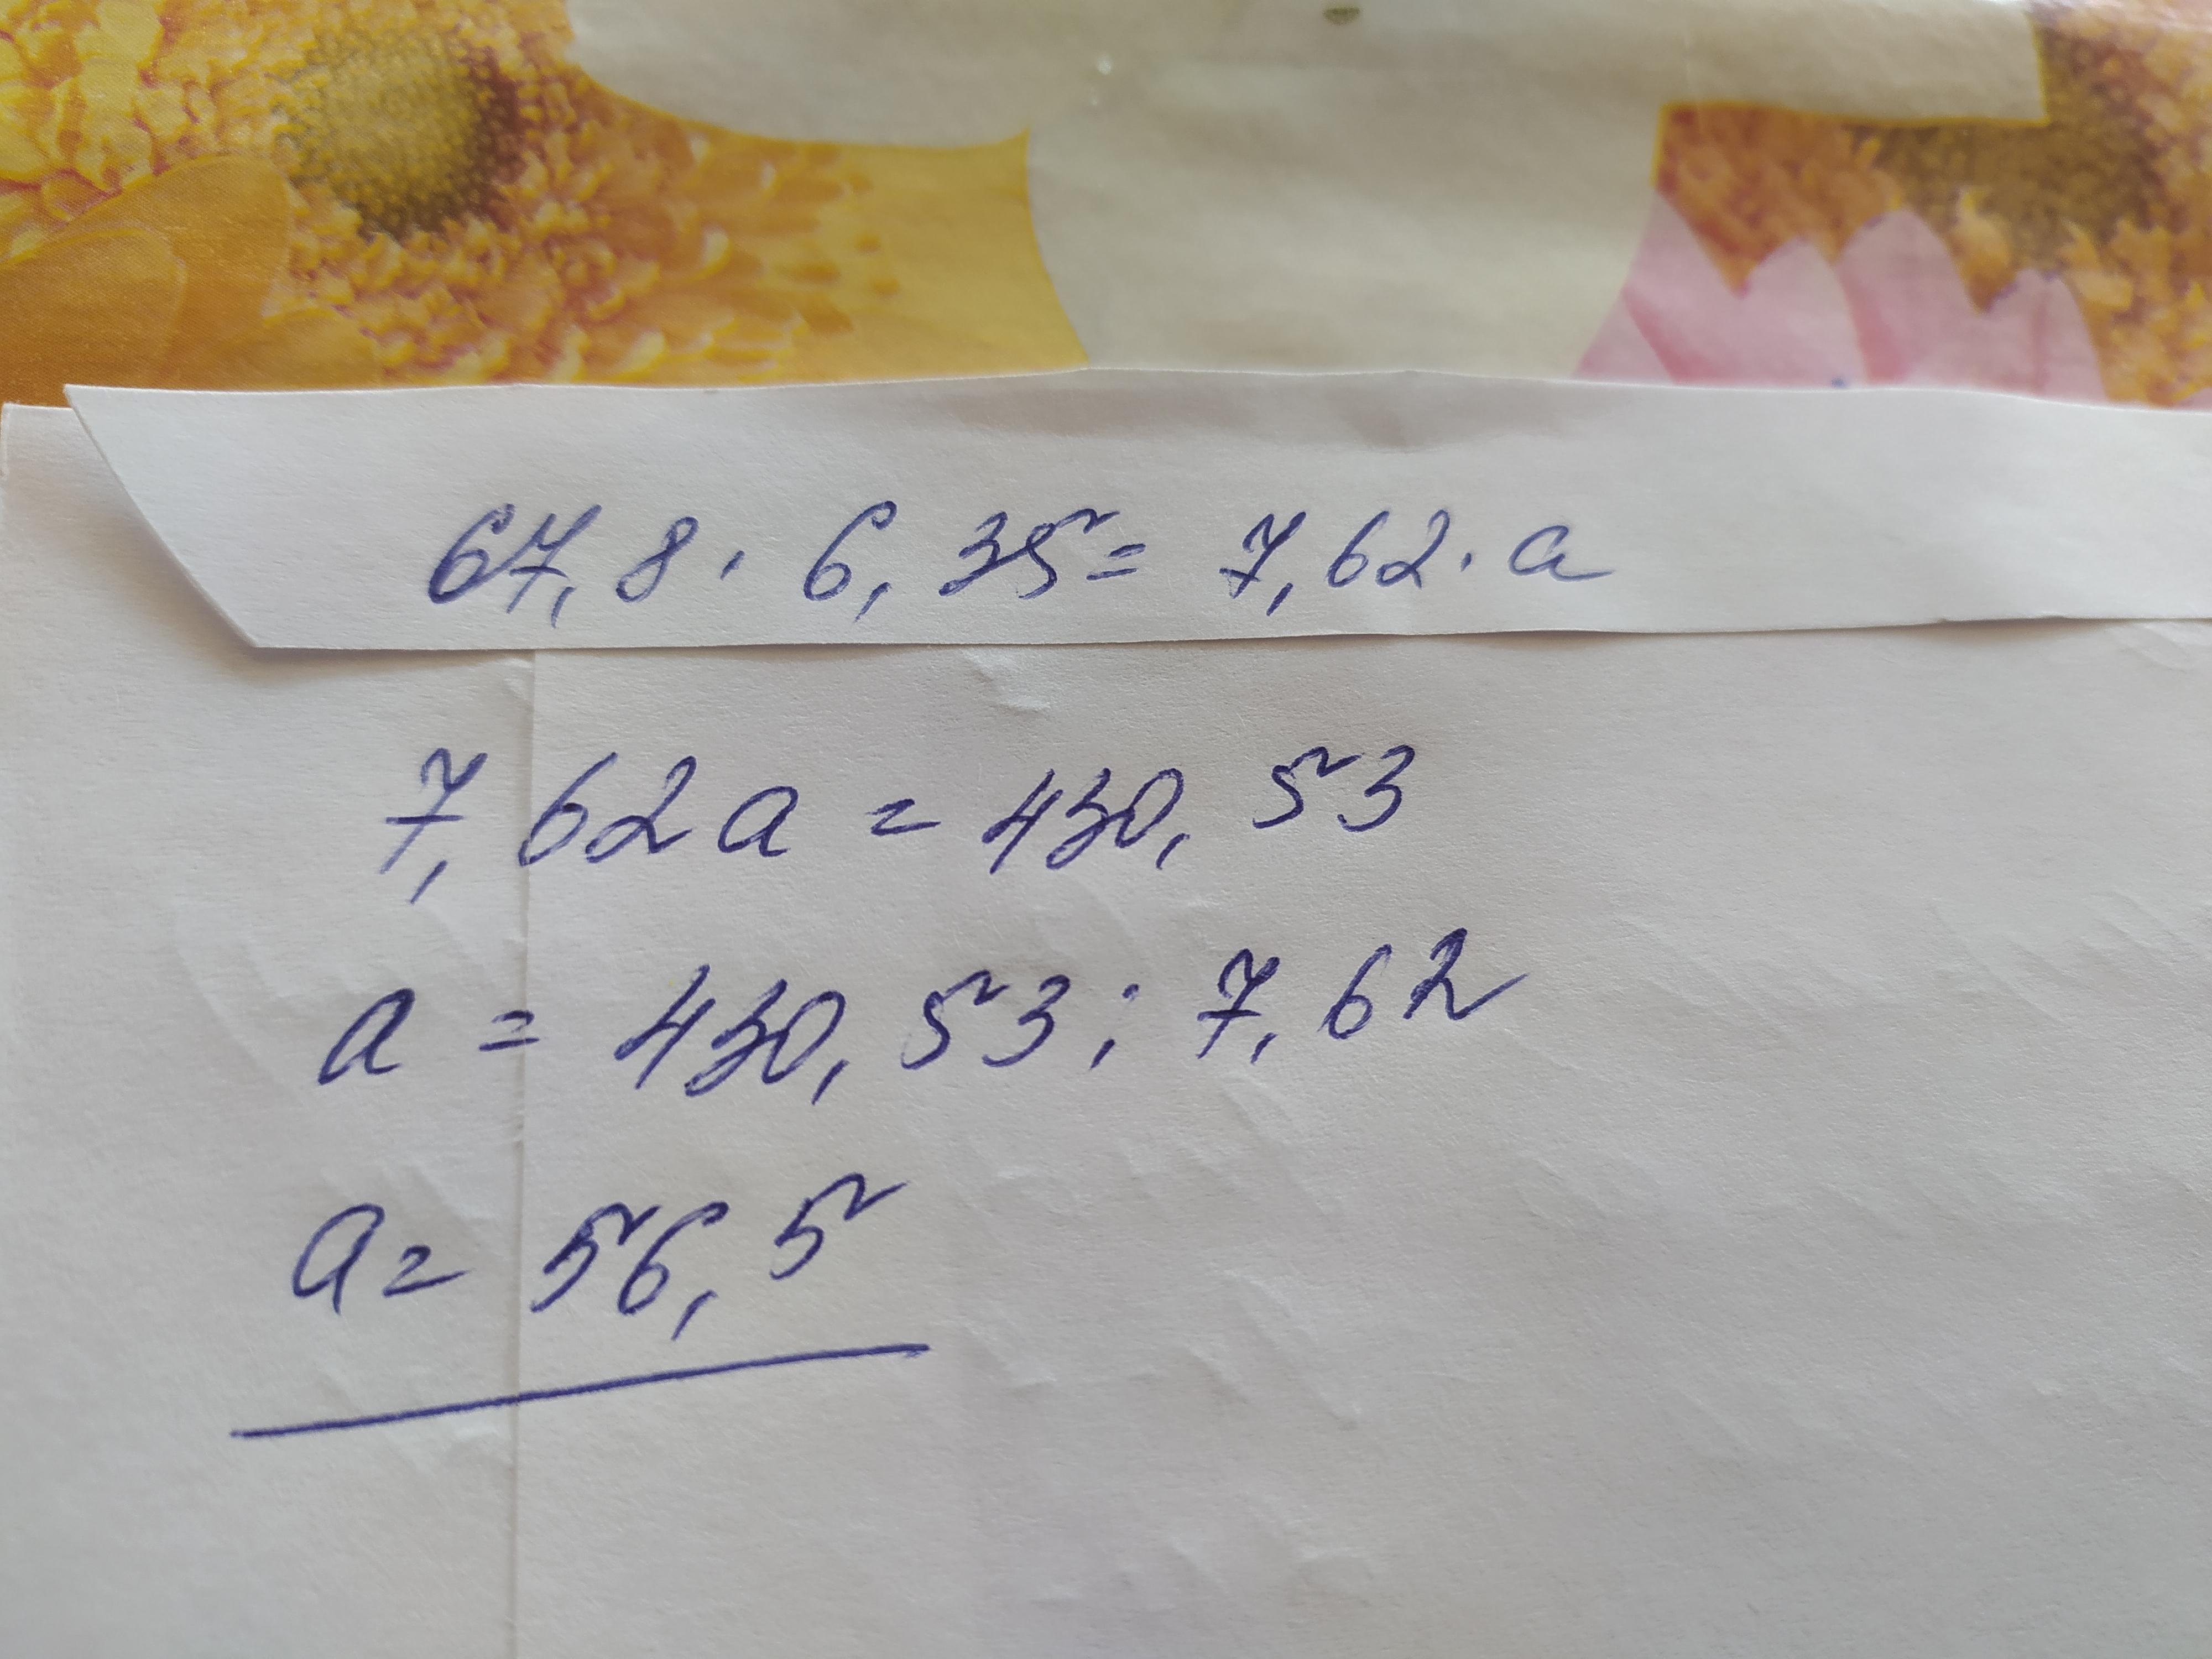 67,8 · 6,35 = 7,62 · a
7,62a = 430,53
a = 430,53 : 7,62
a = 56,5